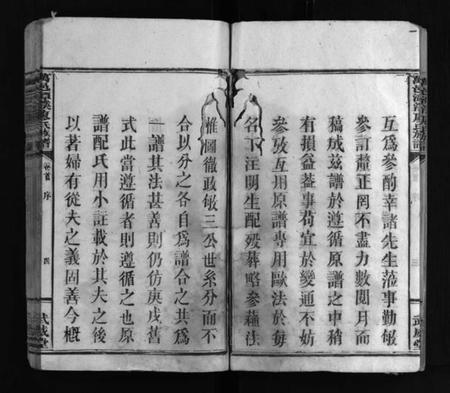 互爲參酌幸諸先生蒞事勤敏
參訂釐正罔不盡力數閱月而
稿成茲譜於遵循原譜之中稍
有損益葢事苟宜於變通不妨
參攷互用原譜專用歐法於每
名下注明生配殁葬略參蘓法
惟圖徹政敏三公世系分而不
合以分之各自爲譜合之共爲
一譜其法甚善則仍庚戌舊
式此當遵循者則遵循之也原
譜配氏用小註載於其夫之後
以著婦有從夫之義固善今槪
卷首 序 四
武威堂
三